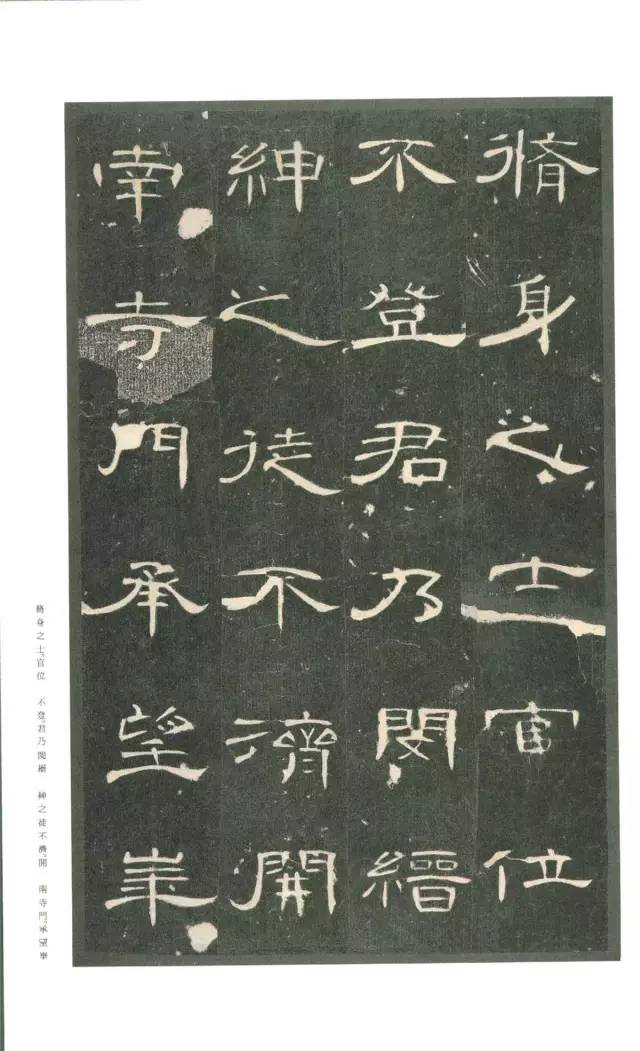 脩身之士官位
不登君乃閔縉
紳之徒不濟開
南寺門承望華
脩身之士。官位　不登。君乃閔縉　紳之徒不濟。開　南寺門。承望華